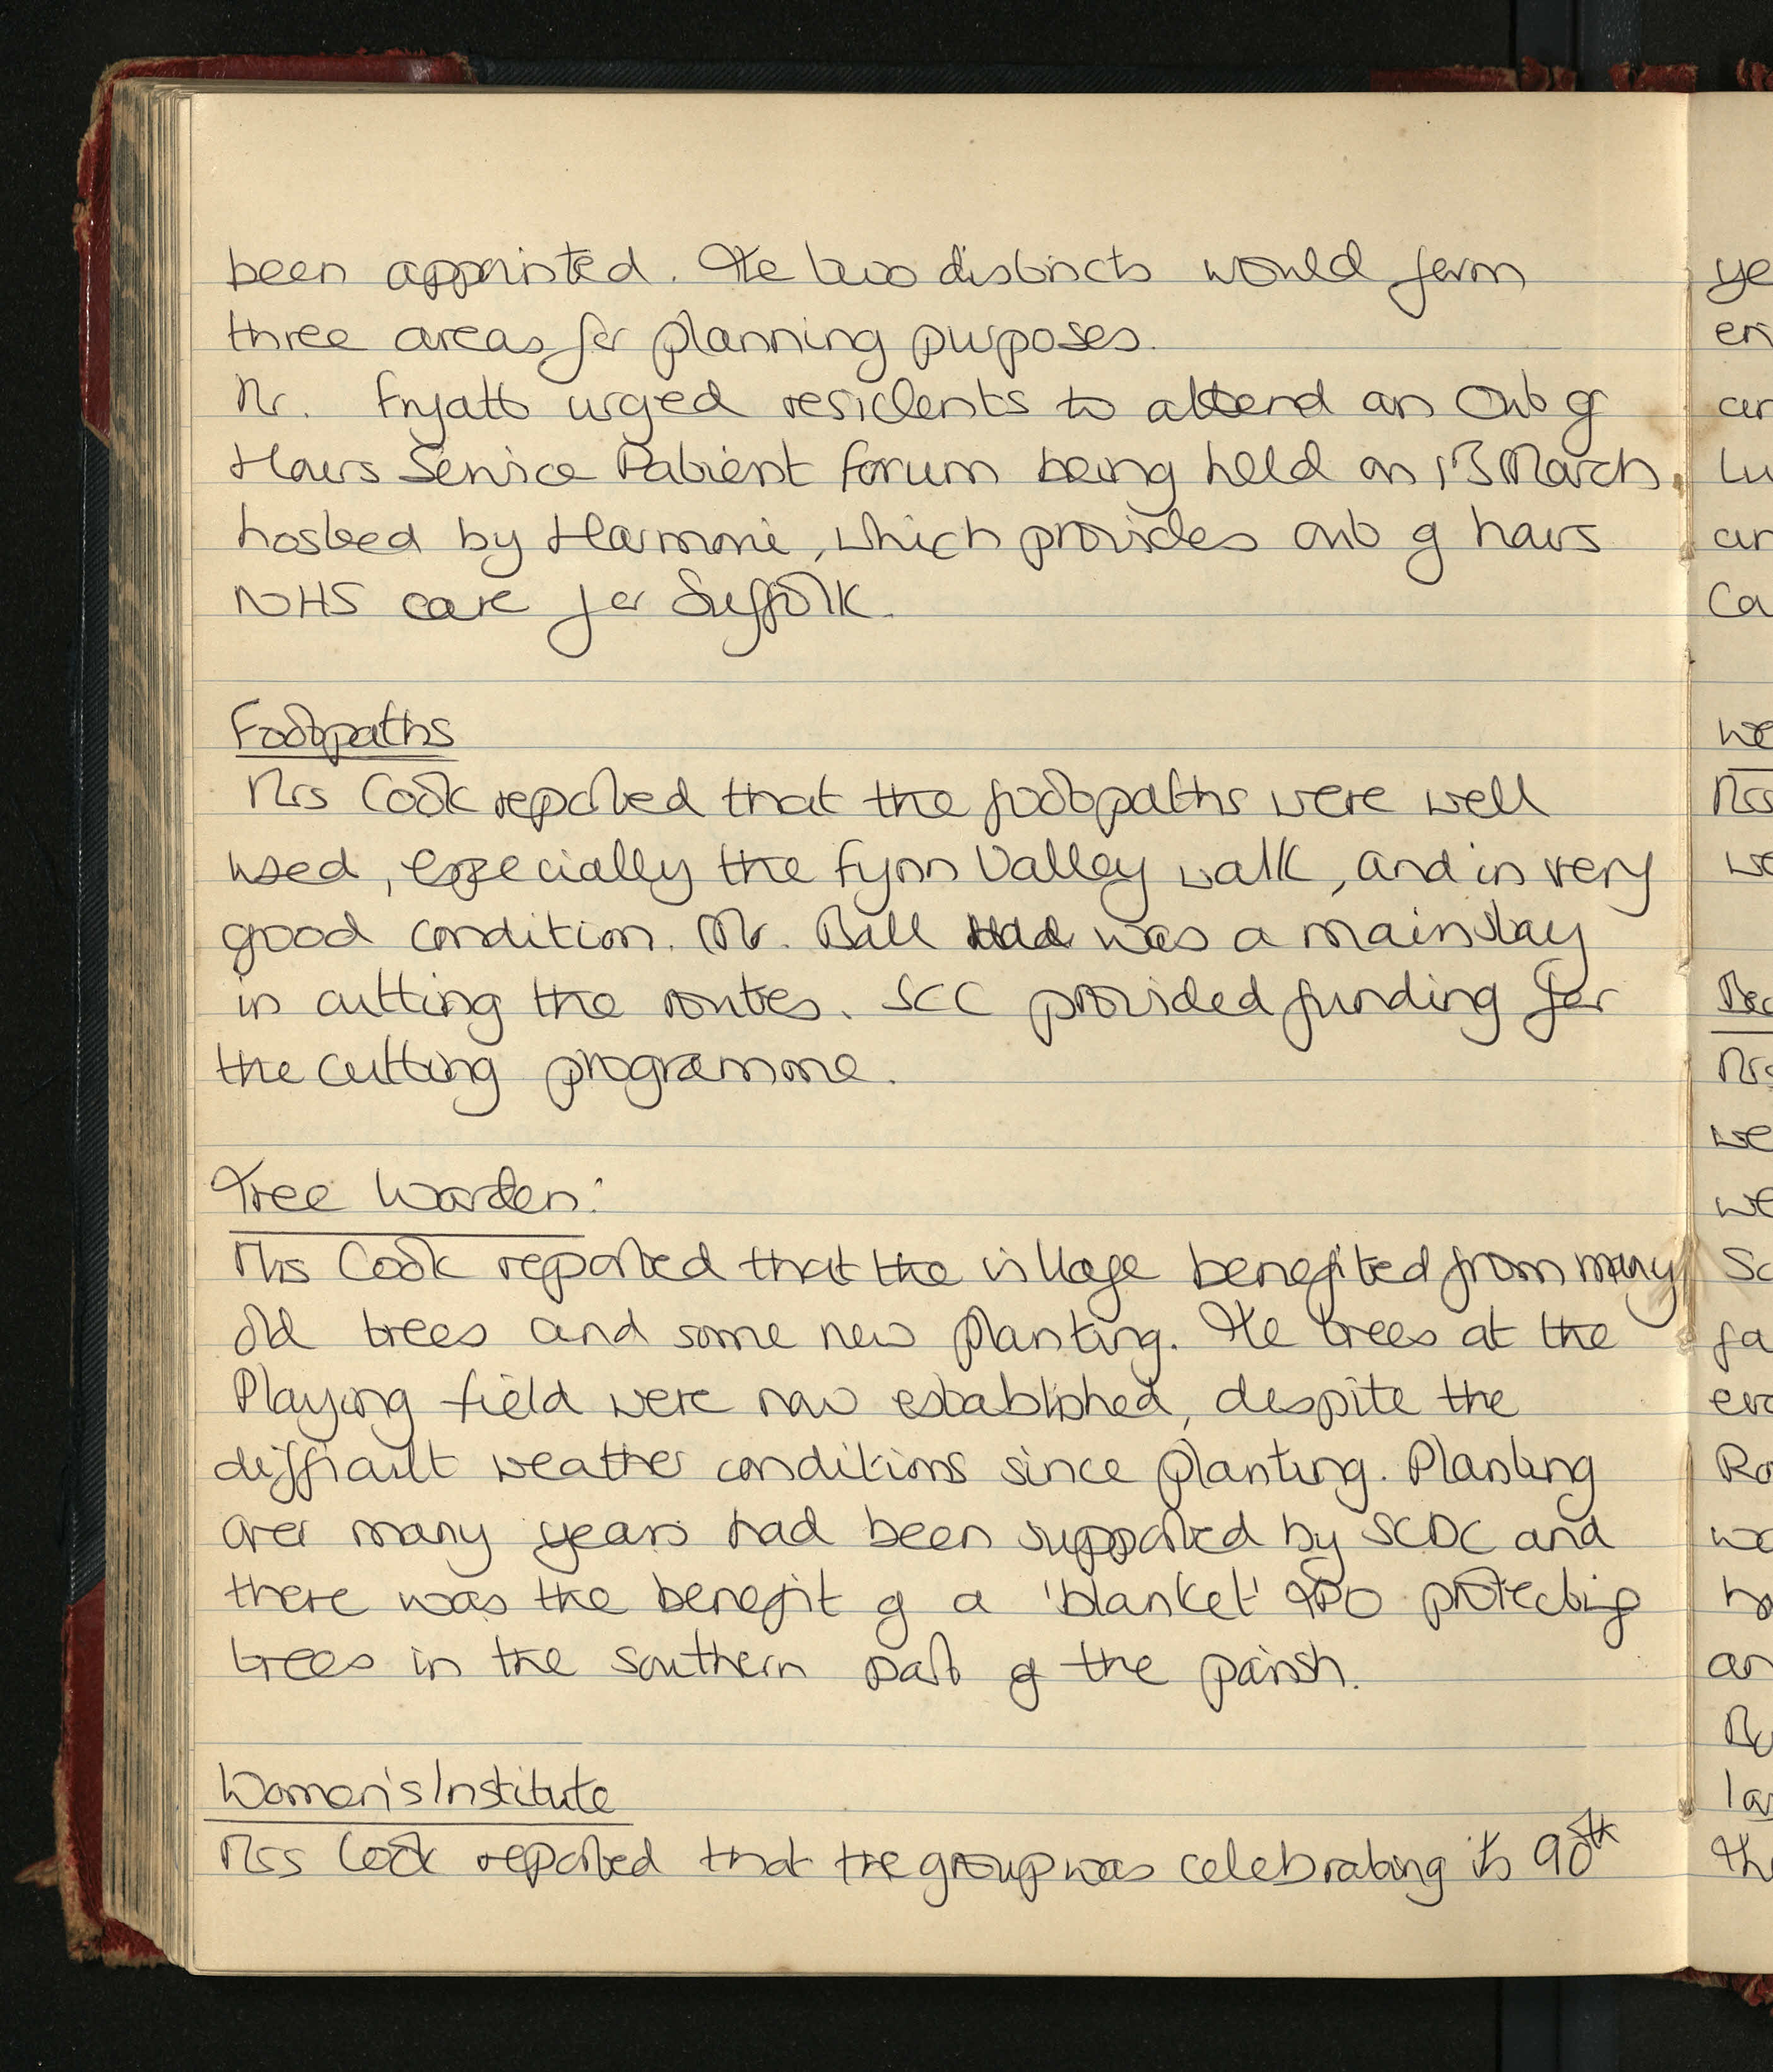 been appointed. The two districts would form
three areas for planning purposes.
Mr. Fryatt urged residents to attend an Out of
Hours Service Patient Forum being held on 13 March,
hosted by Harmoni, which provides out of hours
NHS care for Suffolk.
Footpaths
Mrs Cook reported that the footpaths were well
used, especially the Fynn Valley walk, and in very
good condition. Mr. Ball was a mainstay
in cutting the routes. SCC provided funding for
the cutting programme.
Tree Warden:
Mrs Cook reported that the village benefited from many
old trees and some new planting. The trees at the
Playing field were now established, despite the
difficult weather conditions since planting. Planting
over many years had been supported by SCDC and
there was the benefit of a 'blanket' TPO protecting
trees in the southern part of the parish.
Women's Institute
Mrs Cook reported that the group was celebrating its 90th